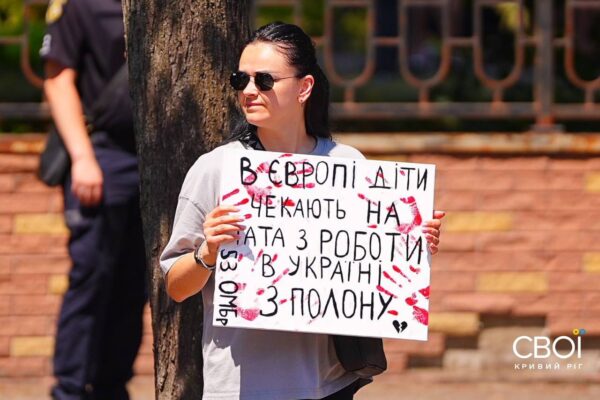 В ЄВРОПІ ДІТИ
ЧЕКАЮТЬ НА
ТАТА З РОБОТИ
В УКРАЇНІ
З ПОЛОНУ
53 ОМБр
СВОЇ
КРИВИЙ РІГ